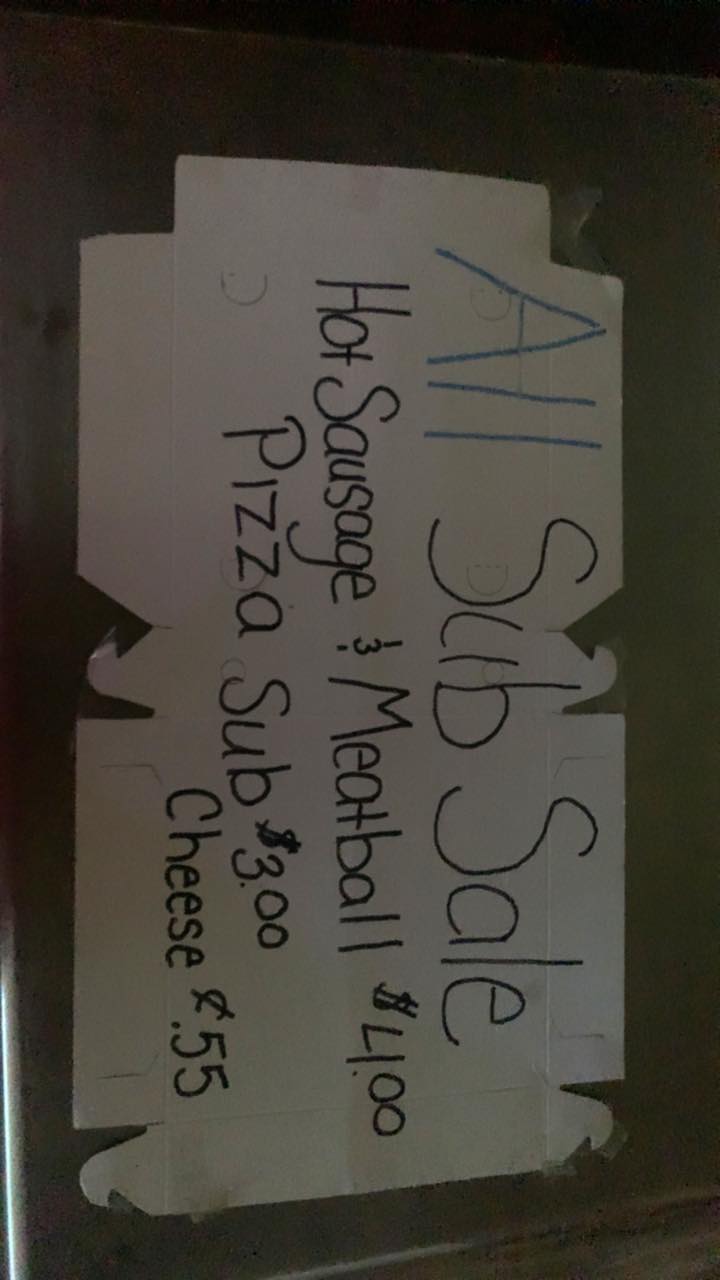 All Sub Sale
Hot Sausage & Meatball $4.00
Pizza Sub $3.00
Cheese ¢.55